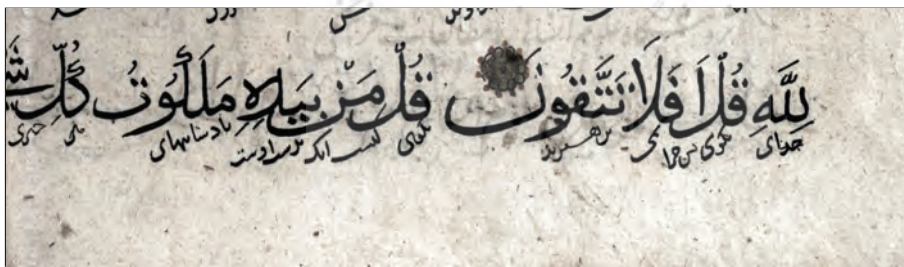 لِلَّهِ قُلْ اَفَلَا تَتَّقُونَ قُلْ مَنْ بِيَدِهِ مَلَكُوتُ كُلِّ شَيْ
خدای بگوی پس چرا نمی پرهیزید بگوی کیست آنک بدست اوست پادشاهیهای چیزی